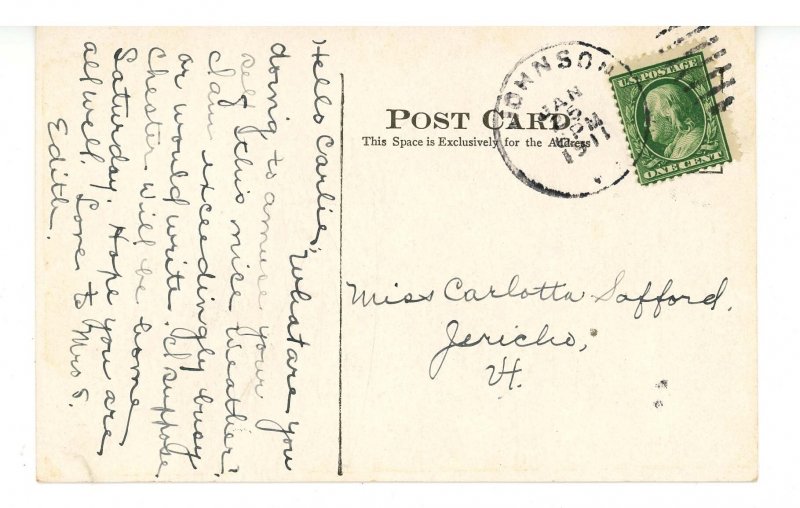 Hello Carlie, What are you
doing to amuse your
self this nice weather?
I am exceedingly busy
or would write. I suppose
Chester will be home
Saturday. Hope you are
all well. Love to Mrs S.
Edith.
POST CARD
This Space is Exclusively for the Address
JOHNSON
JAN
PM
1911
U.S. POSTAGE
ONE CENT
Miss Carlotta Safford,
Jericho,
Vt.